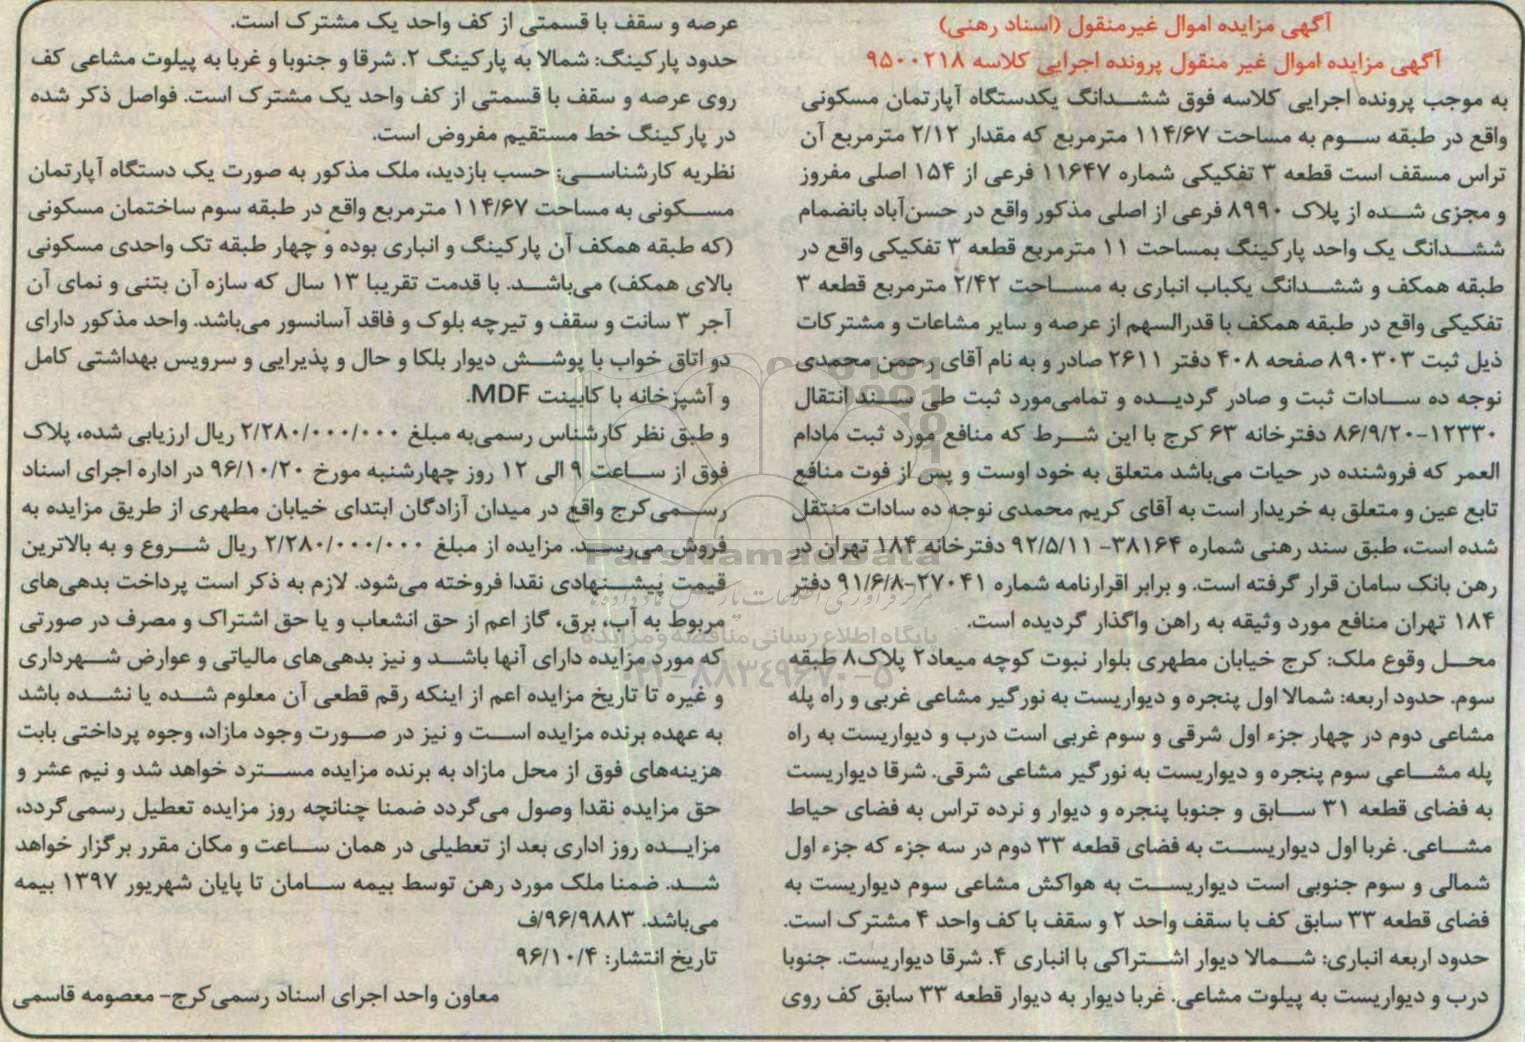 آگهی مزایده اموال غیرمنقول (اسناد رهنی)
آگهی مزایده اموال غیر منقول پرونده اجرایی کلاسه ۹۵۰۰۲۱۸
به موجب پرونده اجرایی کلاسه فوق ششدانگ یکدستگاه آپارتمان مسکونی
واقع در طبقه سوم به مساحت ۱۱۴/۶۷ مترمربع که مقدار ۲/۱۲ مترمربع آن
تراس مسقف است قطعه ۳ تفکیکی شماره ۱۱۶۴۷ فرعی از ۱۵۴ اصلی مفروز
و مجزی شده از پلاک ۸۹۹۰ فرعی از اصلی مذکور واقع در حسن‌آباد بانضمام
ششدانگ یک واحد پارکینگ بمساحت ۱۱ مترمربع قطعه ۳ تفکیکی واقع در
طبقه همکف و ششدانگ یکباب انباری به مساحت ۲/۴۲ مترمربع قطعه ۳
تفکیکی واقع در طبقه همکف با قدرالسهم از عرصه و سایر مشاعات و مشترکات
ذیل ثبت ۸۹۰۳۰۳ صفحه ۴۰۸ دفتر ۲۶۱۱ صادر و به نام آقای رحمن محمدی
نوجه ده سادات ثبت و صادر گردیده و تمامی‌مورد ثبت طی سند انتقال
۱۲۳۳۰-۸۶/۹/۲۰ دفترخانه ۶۳ کرج با این شرط که منافع مورد ثبت مادام
العمر که فروشنده در حیات می‌باشد متعلق به خود اوست و پس از فوت منافع
تابع عین و متعلق به خریدار است به آقای کریم محمدی نوجه ده سادات منتقل
شده است، طبق سند رهنی شماره ۳۸۱۶۴- ۹۲/۵/۱۱ دفترخانه ۱۸۴ تهران در
رهن بانک سامان قرار گرفته است. و برابر اقرارنامه شماره ۲۷۰۴۱-۹۱/۶/۸ دفتر
۱۸۴ تهران منافع مورد وثیقه به راهن واگذار گردیده است.
محل وقوع ملک: کرج خیابان مطهری بلوار نبوت کوچه میعاد۲ پلاک۸ طبقه
سوم. حدود اربعه: شمالا اول پنجره و دیواریست به نورگیر مشاعی غربی و راه پله
مشاعی دوم در چهار جزء اول شرقی و سوم غربی است درب و دیواریست به راه
پله مشاعی سوم پنجره و دیواریست به نورگیر مشاعی شرقی. شرقا دیواریست
به فضای قطعه ۳۱ سابق و جنوبا پنجره و دیوار و نرده تراس به فضای حیاط
مشاعی. غربا اول دیواریست به فضای قطعه ۳۳ دوم در سه جزء که جزء اول
شمالی و سوم جنوبی است دیواریست به هواکش مشاعی سوم دیواریست به
فضای قطعه ۳۳ سابق کف با سقف واحد ۲ و سقف با کف واحد ۴ مشترک است.
حدود اربعه انباری: شمالا دیوار اشتراکی با انباری ۴. شرقا دیواریست. جنوبا
درب و دیواریست به پیلوت مشاعی. غربا دیوار به دیوار قطعه ۳۳ سابق کف روی
عرصه و سقف با قسمتی از کف واحد یک مشترک است.
حدود پارکینگ: شمالا به پارکینگ ۲. شرقا و جنوبا و غربا به پیلوت مشاعی کف
روی عرصه و سقف با قسمتی از کف واحد یک مشترک است. فواصل ذکر شده
در پارکینگ خط مستقیم مفروض است.
نظریه کارشناسی: حسب بازدید، ملک مذکور به صورت یک دستگاه آپارتمان
مسکونی به مساحت ۱۱۴/۶۷ مترمربع واقع در طبقه سوم ساختمان مسکونی
(که طبقه همکف آن پارکینگ و انباری بوده و چهار طبقه تک واحدی مسکونی
بالای همکف) می‌باشد. با قدمت تقریبا ۱۳ سال که سازه آن بتنی و نمای آن
آجر ۳ سانت و سقف و تیرچه بلوک و فاقد آسانسور می‌باشد. واحد مذکور دارای
دو اتاق خواب با پوشش دیوار بلکا و حال و پذیرایی و سرویس بهداشتی کامل
و آشپزخانه با کابینت MDF.
و طبق نظر کارشناس رسمی‌به مبلغ ۲/۲۸۰/۰۰۰/۰۰۰ ریال ارزیابی شده، پلاک
فوق از ساعت ۹ الی ۱۲ روز چهارشنبه مورخ ۹۶/۱۰/۲۰ در اداره اجرای اسناد
رسمی‌کرج واقع در میدان آزادگان ابتدای خیابان مطهری از طریق مزایده به
فروش می‌رسد. مزایده از مبلغ ۲/۲۸۰/۰۰۰/۰۰۰ ریال شروع و به بالاترین
قیمت پیشنهادی نقدا فروخته می‌شود. لازم به ذکر است پرداخت بدهی‌های
مربوط به آب، برق، گاز اعم از حق انشعاب و یا حق اشتراک و مصرف در صورتی
که مورد مزایده دارای آنها باشد و نیز بدهی‌های مالیاتی و عوارض شهرداری
و غیره تا تاریخ مزایده اعم از اینکه رقم قطعی آن معلوم شده یا نشده باشد
به عهده برنده مزایده است و نیز در صورت وجود مازاد، وجوه پرداختی بابت
هزینه‌های فوق از محل مازاد به برنده مزایده مسترد خواهد شد و نیم عشر و
حق مزایده نقدا وصول می‌گردد ضمنا چنانچه روز مزایده تعطیل رسمی‌گردد،
مزایده روز اداری بعد از تعطیلی در همان ساعت و مکان مقرر برگزار خواهد
شد. ضمنا ملک مورد رهن توسط بیمه سامان تا پایان شهریور ۱۳۹۷ بیمه
می‌باشد. ۹۶/۹۸۸۳/ف
تاریخ انتشار: ۹۶/۱۰/۴
معاون واحد اجرای اسناد رسمی‌کرج- معصومه قاسمی
ParsNamadData
پایگاه اطلاع رسانی مناقصه و مزایده
۰۲۱-۸۸۳۴۹۶۷۰-۵